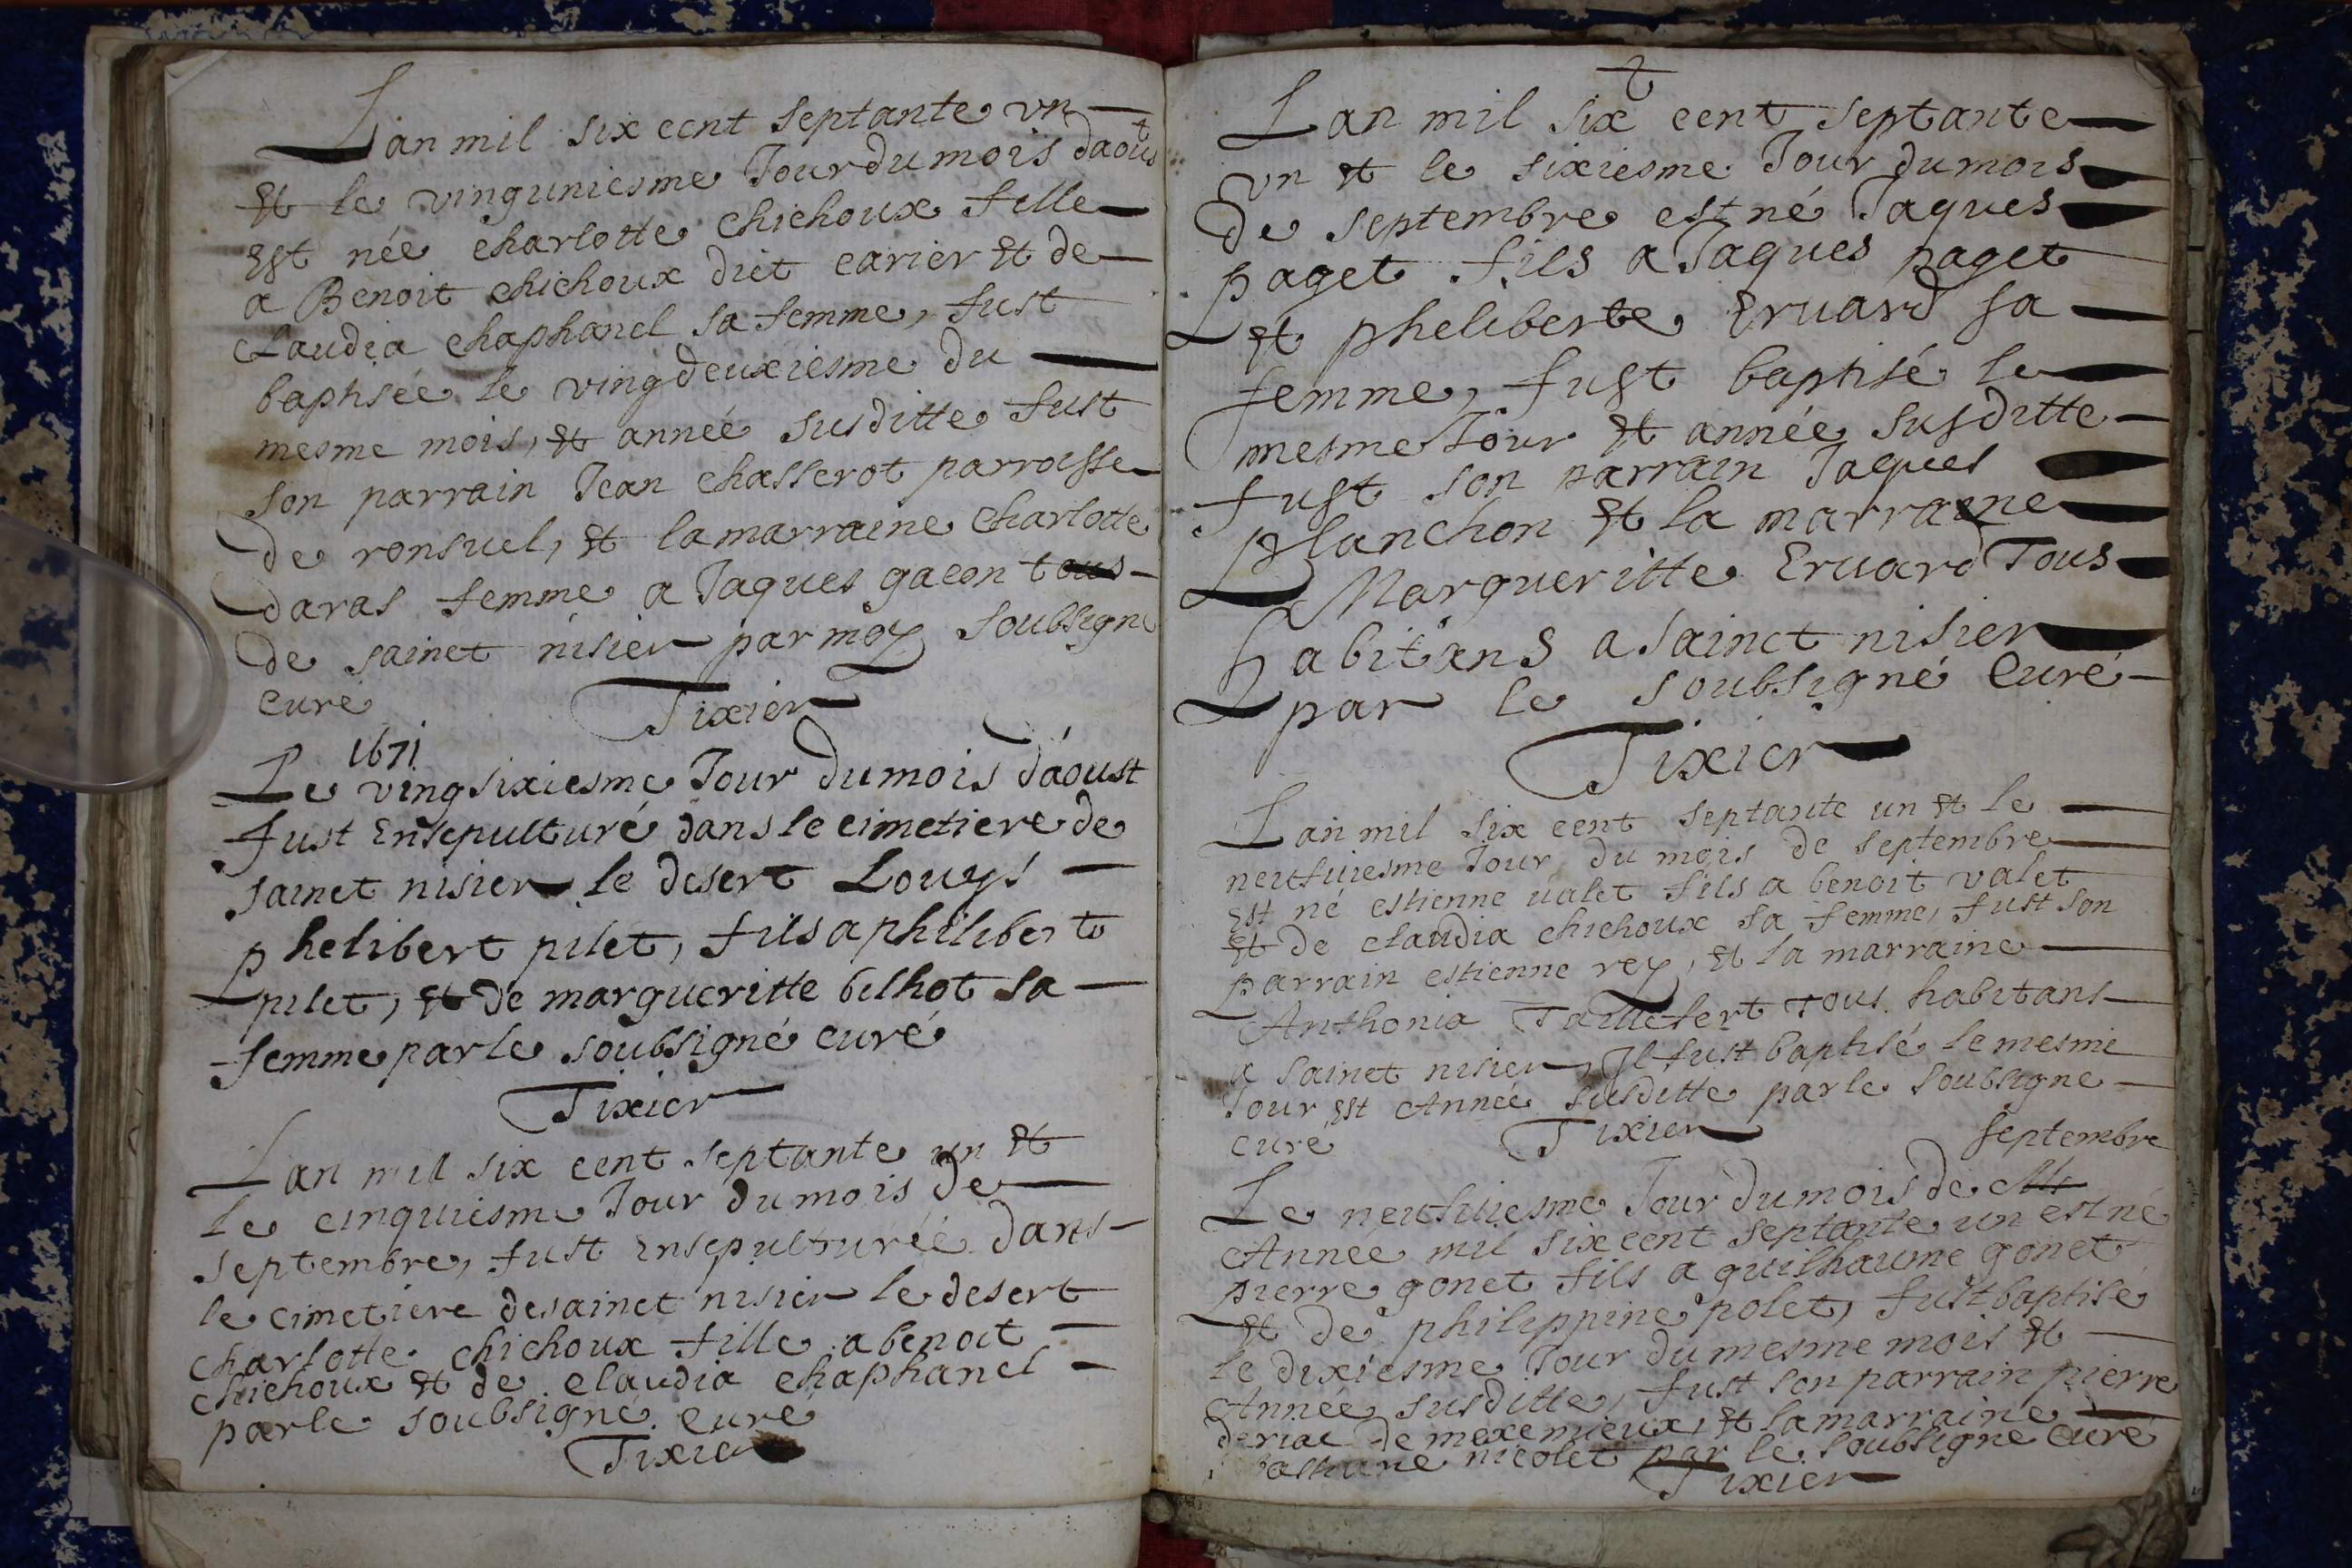 Lan mil six cent septante vn
et le vinguniesme Jour du mois daoust
est née charlotte chichoux fille
a Benoit chichoux dict carier et de
Claudia chaphanel sa femme, fust
baptisée le vingdeuxiesme du
mesme mois, et année susditte fust
son parrain Jean chasserot parroisse
de ronsuel, et la marraine charlotte
daras femme a Jaques gacon tous
de sainct nisier par moy soubsigné
curé
Tixier
1671
Le vingsixiesme Jour du mois d'aoust
fust Ensepulturé dans le cimetiere de
sainct nisier le desert Louys
phelibert pilet, fils a philibert
pilet, et de margueritte bilhot sa
femme par le soubsigné curé
Tixier
Lan mil six cent septante un et
le cinquiesme Jour du mois de
septembre, fust ensepulturée dans
le cimetiere de sainct nisier le desert
charlotte chichoux fille a benoit
chichoux et de claudia chaphanel
par le soubsigné curé
Tixier
Lan mil six cent septante
vn et le sixiesme Jour du mois
de septembre est né Jaques
paget fils a Jaques paget
et pheliberte Eruard sa
femme, fust baptisé le
mesme Jour et année susditte
fust son parrain Jaques
Planchon et la marraine
Margueritte Eruard Tous
habitans a sainct nisier
par le soubsigné Curé
Tixier
Lan mil six cent septante un et le
neufuiesme Jour du mois de septembre
est né estienne ualet fils a benoit valet
et de claudia chichoux sa femme, fust son
parrain estienne rey, et la marraine
Anthonia Taillefert Tous habitans
a sainct nisier, Il fust baptisé le mesme
Jour est Année susditte par le soubsigné
curé
Tixier
septembre
Le neufuiesme Jour du mois de
Année mil six cent septante un est né
pierre gonet fils a guilhaume gonet
et de philippine polet, fust baptisé
le dixiesme Jour du mesme mois et
Année susditte, fust son parrain pierre
deriac de mexemieux, et la marraine
nicolet par le soubsigné curé
Tixier